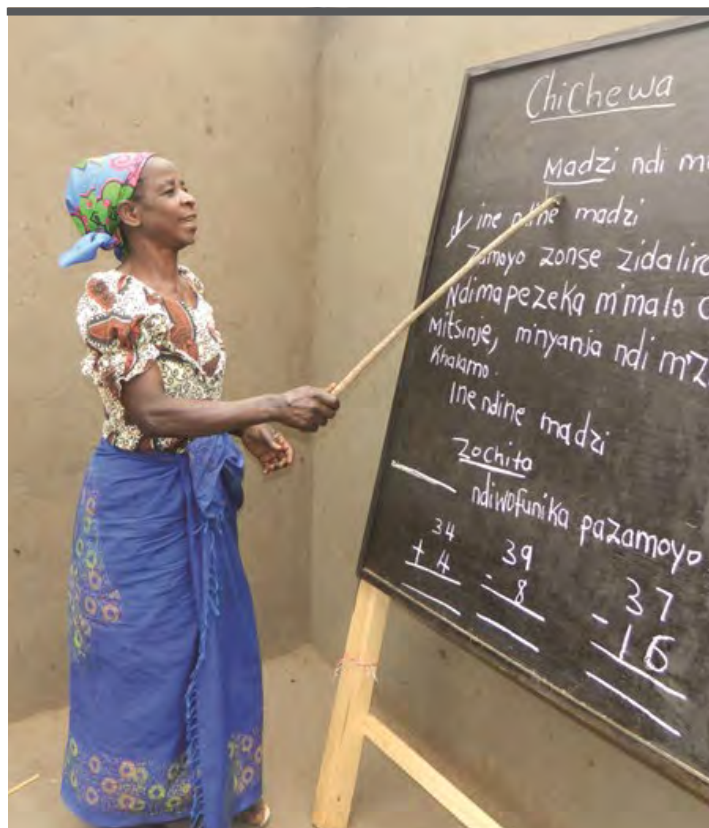 Chichewa
Madzi ndi m
ine ndine madzi
Zamoyo zonse zidalira
Ndimapezeka m'malo
Mitsinje, m'nyanja ndi m'z
Khalamo.
Ine ndine madzi
Zochita
____ ndiwofunika pazamoyo
34 39 37
+ 4 - 8 - 16